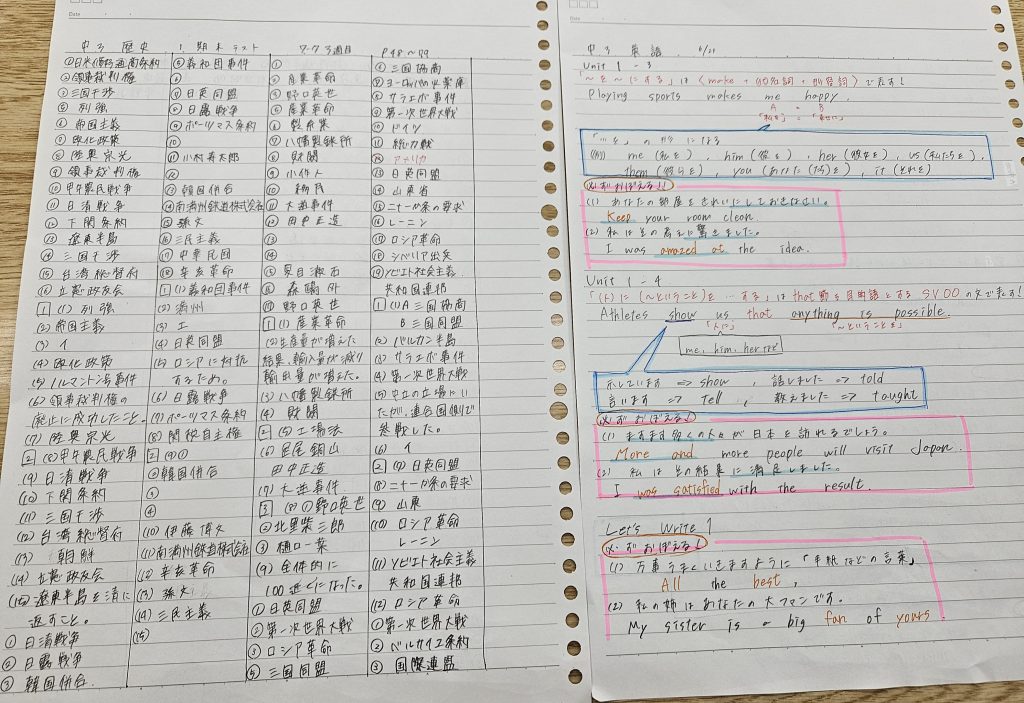 Date
中3 歴史 1. 期末テスト ワーク3週目 P48〜79
①日米修好通商条約
②領事裁判権
③三国干渉
⑤列強
⑥帝国主義
⑦欧化政策
⑧陸奥宗光
⑨領事裁判権
⑩甲午農民戦争
⑪日清戦争
⑫下関条約
⑬遼東半島
⑭三国干渉
⑮台湾総督府
⑯立憲政友会
1 (1) 列強
(2) 帝国主義
(3) イ
(4) 欧化政策
(5) ノルマントン号事件
(6) 領事裁判権の
廃止に成功したこと。
(7) 陸奥宗光
2 (8) 甲午農民戦争
(9) 日清戦争
(10) 下関条約
(11) 三国干渉
(12) 台湾総督府
(13) 朝鮮
(14) 立憲政友会
(15) 遼東半島を清に
返すこと。
① 日清戦争
② 日露戦争
③ 韓国併合
義和団事件
日英同盟
日露戦争
ポーツマス条約
⑩
⑪小村寿太郎
韓国併合
南満州鉄道株式会社
孫文
三民主義
中華民国
辛亥革命
1 (1) 義和団事件
(2) 満州
(3) エ
(4) 日英同盟
(5) ロシアに対抗
するため。
(6) 日露戦争
(7) ポーツマス条約
(8) 関税自主権
2 (9) ①
②韓国併合
③
④
(10) 伊藤博文
(11) 南満州鉄道株式会社
(12) 辛亥革命
(13) 孫文
(14) 三民主義
(15)
①
② 産業革命
③ 野口英世
産業革命
⑥ 製糸業
⑦ 八幡製鉄所
⑧ 財閥
⑨ 小作人
⑩
⑪ 大逆事件
⑫ 田中正造
⑬
⑭
⑮ 夏目漱石
⑯ 森鷗外
⑰ 野口英世
1 (1) 産業革命
(2) 生産量が増えた
結果、輸入量が減り
輸出量が増えた。
(3) 八幡製鉄所
(4) 財閥
2 (5) 工場法
(6) 足尾銅山
田中正造
(7) 大逆事件
3 (8) ① 野口英世
② 北里柴三郎
③ 樋口一葉
(9) 全体的に
100近くになった。
① 日英同盟
② 第一次世界大戦
③ ロシア革命
三国同盟
三国協商
ヨーロッパの火薬庫
サラエボ事件
第一次世界大戦
ドイツ
総力戦
アメリカ
日英同盟
山東省
二十一か条の要求
レーニン
ロシア革命
シベリア出兵
ソビエト社会主義
共和国連邦
1 (1) A 三国協商
B 三国同盟
(2) バルカン半島
(3) サラエボ事件
(4) 第一次世界大戦
(5) 中立の立場にい
たが、連合国側で
参戦した。
(6) イ
2 (7) 日英同盟
(8) 二十一か条の要求
(9) 山東
(10) ロシア革命
レーニン
(11) ソビエト社会主義
共和国連邦
(12) ロシア革命
① 第一次世界大戦
② ベルサイユ条約
③ 国際連盟
Date
中3 英語 6/21
Unit 1 - 3
「〜を〜にする」は〈make + (代)名詞 + 形容詞〉で表す!
Playing sports makes me happy.
A = B
「…を」の形になる
(例) me (私を), him (彼を), her (彼女を), us (私たちを),
them (彼らを), you (あなた(たち)を), it (それを)
必ずおぼえる!!
(1) あなたの部屋をきれいにしておきなさい。
Keep your room clean.
(2) 私はその考えに驚きました。
I was amazed at the idea.
Unit 1 - 4
「(人)に(〜ということ)を…する」はthat節を目的語とするSVOOの文で表す!
Athletes show us that anything is possible.
「人に」 「〜ということを」
me, him, herなど
示しています ⇒ show , 話しました ⇒ told
言います ⇒ tell , 教えました ⇒ taught
必ずおぼえる!
(1) ますます多くの人々が日本を訪れるでしょう。
More and more people will visit Japan.
(2) 私はその結果に満足しました。
I was satisfied with the result.
Let's Write 1
必ずおぼえる!
(1) 万事うまくいきますように「手紙などの言葉」
All the best,
(2) 私の姉はあなたの大ファンです。
My sister is a big fan of yours.